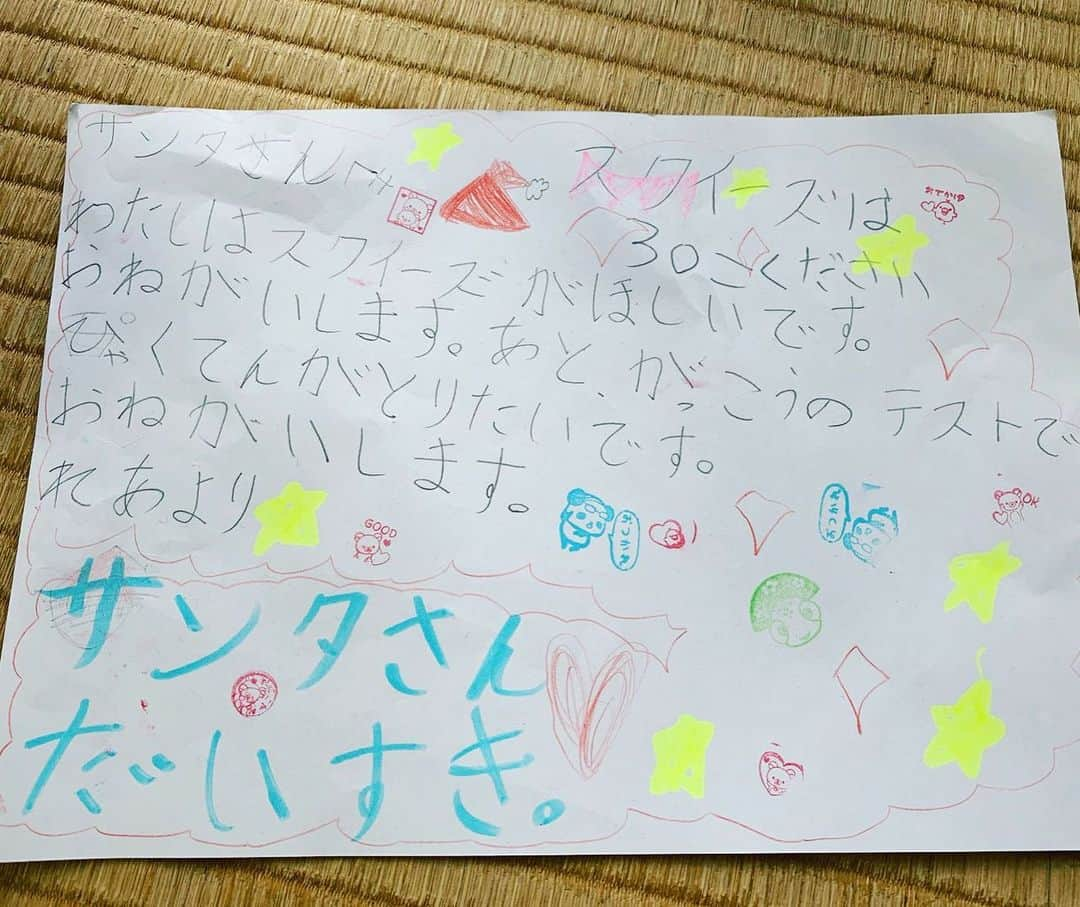 サンタさんへ
わたしはスクイーズがほしいです。
おねがいします。あと、がっこうのテストで
ぴゃくてんがとりたいです。
おねがいします。
れあより
スクイーズは
30こください
おでかけ
GOOD
おつかれ
おつかれ
OK
サンタさん
だいすき。